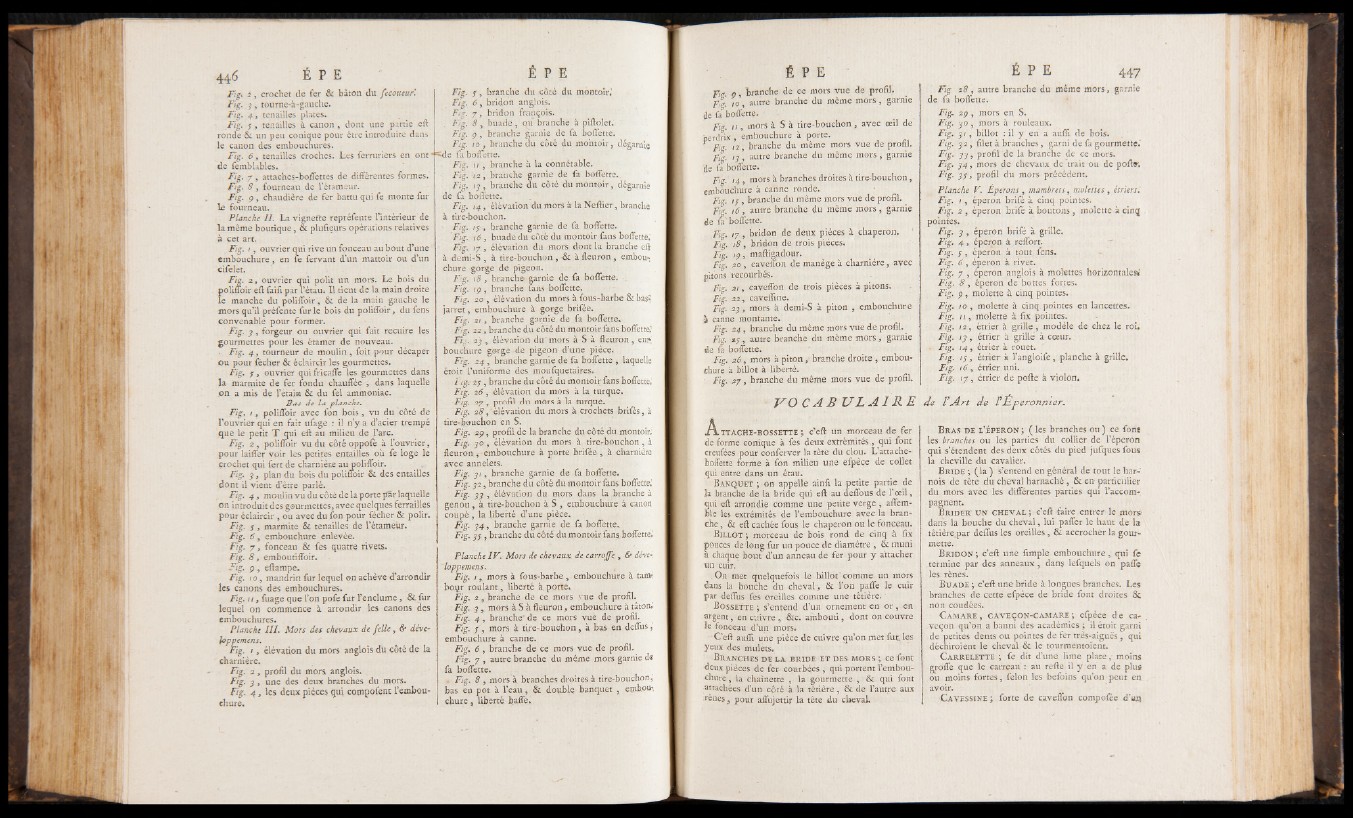 446 ÉPE ÉPE
Fig. 2, crochet de fer & bâton du secoueur.
Fig. 3, tourne-à-gauche.
Fig. 4, tenailles plates.
Fig. 5, tenailles à canon, dont une partie est
ronde & un peu conique pour être introduite dans
le canon des embouchures.
Fig. 6, tenailles croches. Les serruriers en ont
de semblables.
Fig. 7, attaches-bossettes de différentes formes.
Fig. 8, fourneau de l'étameur.
Fig. 9, chaudière de fer battu qui se monte sur
le fourneau.
Planche II. La vignette représente l'intérieur de
la même boutique, & plusieurs opérations relatives
à cet art.
Fig. 1, ouvrier qui rive un fonceau au bout d'une
embouchure, en se servant d'un mattoir ou d'un
ciselet.
Fig. 2, ouvrier qui polit un mors. Le bois du
polissoir est saisi par l'étau. Il tient de la main droite
le manche du polissoir, & de la main gauche le
mors qu'il présente sur le bois du polissoir, du sens
convenable pour former.
Fig. 3, forgeur ou ouvrier qui fait recuire les
gourmettes pour les étamer de nouveau.
Fig. 4, tourneur de moulin, soit pour décaper
ou pour sécher & éclaircir les gourmettes.
Fig. 5, ouvrier qui fricasse les gourmettes dans
la marmite de fer fondu chauffée, dans laquelle
on a mis de l'étaim & du sel ammoniac.
Bas de la planche.
Fig. 1, polissoir avec son bois, vu du côté de
l'ouvrier qui en fait usage : il n'y a d'acier trempé
que le petit T qui est au milieu de l'arc.
Fig. 2, polissoir vu du côté opposé à l'ouvrier,
pour laisser voir les petites entailles où se loge le
crochet qui sert de charnière au polissoir.
Fig. 3, plan du bois du polissoir & des entailles
dont il vient d'être parlé.
Fig. 4, moulin vu du côté de la porte par laquelle
on introduit des gourmettes, avec quelques ferrailles
pour éclaircir, ou avec du son pour sécher & polir.
Fig. 5, marmite & tenailles de l'étameur.
Fig. 6, embouchure enlevée.
Fig. 7, fonceau & ses quatre rivets.
Fig. 8, emboutissoir.
Fig. 9, estampe.
Fig. 10, mandrin sur lequel on achève d'arrondir
les canons des embouchures.
Fig. 11, suage que l'on pose sur l'enclume, & sur
lequel on commence à arrondir les canons des
embouchures.
Planche III. Mors des chevaux de selle, & développemens.
Fig. 1, élévation du mors anglois du côté de la
charnière.
Fig. 2, profil du mors anglois.
Fig. 3, une des deux branches du mors.
Fig. 4, les deux pièces qui composent l'embouchure.
Fig. 5, branche du côté du montoir.
Fig. 6, bridon anglois.
Fig. 7, bridon françois.
Fig. 8, buade, ou branche à pistolet.
Fig. 9, branche garnie de sa bossette.
Fig. 10, branche du côté du montoir, dégarnie
de sa bossette.
Fig. 11, branche à la connétable.
Fig. 12, branche garnie de sa bossette.
Fig. 13, branche du côté du montoir, dégarnie
de sa bossette.
Fig. 14, élévation du mors à la Nestier, branche
à tire-bouchon.
Fig. 15, branche garnie de sa bossette.
Fig. 16, buade du côté du montoir sans bossette.
Fig. 17, élévation du mors dont la branche est
à demi-S, à tire-bouchon, & à fleuron, embouchure
gorge de pigeon.
Fig. 18, branche garnie de sa bossette.
Fig. 19, branche sans bossette.
Fig. 20, élévation du mors à sous-barbe & bas
jarret, embouchure à gorge brisée.
Fig. 21, branche garnie de sa bossette.
Fig. 22, branche du côté du montoir sans bossette.
Fig. 23, élévation du mors à S à fleuron, embouchure
gorge de pigeon d'une pièce.
Fig. 24, branche garnie de sa bossette, laquelle
étoit l'uniforme des mousquetaires.
Fig. 25, branche du côté du montoir sans bossette.
Fig. 26, élévation du mors à la turque.
Fig. 27, profil du mors à la turque.
Fig. 28, élévation du mors à crochets brisés, à
tire-bouchon en S.
Fig. 29, profil de la branche du côté du montoir.
Fig. 30, élévation du mors à tire-bouchon, à
fleuron, embouchure à porte brisée, à charnière
avec annelets.
Fig. 31, branche garnie de sa bossette.
Fig. 32, branche du côté du montoir sans bossette.
Fig. 33, élévation du mors dans la branche à
genou, à tire-bouchon à S, embouchure à canon
coupé, la liberté d'une pièce.
Fig. 34, branche garnie de sa bossette.
Fig. 35, branche du côté du montoir sans bossette.
Planche IV. Mors de chevaux de carrosse, & développemens.
Fig. 1, mors à sous-barbe, embouchure à tambour
roulant, liberté à porte.
Fig. 2, branche de ce mors vue de profil.
Fig. 3, mors à S à fleuron, embouchure à tâton.
Fig. 4, branche de ce mors vue de profil.
Fig. 5, mors à tire-bouchon, à bas en dessus,
embouchure à canne.
Fig. 6, branche de ce mors vue de profil.
Fig. 7, autre branche du même mors garnie de
sa bossette.
Fig. 8, mors à branches droites à tire-bouchon,
bas en pot à l'eau, & double banquet, embouchure,
liberté basse.
ÉPE ÉPE 447
Fig. 9, branche de ce mors vue de profil.
Fig. 10, autre branche du même mors, garnie
de sa bossette.
Fig. 11, mors à S à tire-bouchon, avec œil de
perdrix, embouchure à porte.
Fig. 12, branche du même mors vue de profil.
Fig. 13, autre branche du même mors, garnie
de sa bossette.
Fig. 14, mors à branches droites à tire-bouchon,
embouchure à canne ronde.
Fig. 15, branche du même mors vue de profil.
Fig. 16, autre branche du même mors, garnie
de sa bossette.
Fig. 17, bridon de deux pièces à chaperon.
Fig. 18, bridon de trois pièces.
Fig. 19, mastigadour.
Fig. 20, cavesson de manège à charnière, avec
pitons recourbés.
Fig. 21, cavesson de trois pièces à pitons.
Fig. 22, cavessine.
Fig. 23, mors à demi-S à piton, embouchure
à canne montante.
Fig. 24, branche du même mors vue de profil.
Fig. 25, autre branche du même mors, garnie
de sa bossette.
Fig. 26, mors à piton, branche droite, embouchure
à billot à liberté.
Fig. 27, branche du même mors vue de profil.
Fig. 28, autre branche du même mors, garnie
de sa bossette.
Fig. 29, mors en S.
Fig. 30, mors à rouleaux.
Fig. 31, billot : il y en a aussi de bois.
Fig. 32, filet à branches, garni de sa gourmette.
Fig. 33, profil de la branche de ce mors.
Fig. 34, mors de chevaux de trait ou de poste.
Fig. 35, profil du mors précédent.
Planche V. Éperons, mambrets, molettes, étriers.
Fig. 1, éperon brisé à cinq pointes.
Fig. 2, éperon brisé à boutons, molette à cinq
pointes.
Fig. 3, éperon brisé à grille.
Fig. 4, éperon à ressort.
Fig. 5, éperon à tout sens.
Fig. 6, éperon à river.
Fig. 7, éperon anglois à molettes horizontales.
Fig. 8, éperon de bottes fortes.
Fig. 9, molette à cinq pointes.
Fig. 10, molette à cinq pointes en lancettes.
Fig. 11, molette à six pointes.
Fig. 12, étrier à grille, modèle de chez le roi.
Fig. 13, étrier à grille à cœur.
Fig. 14, étrier à rouet.
Fig. 15, étrier à l'angloise, planche à grille.
Fig. 16, étrier uni.
Fig. 17, étrier de poste à violon.
VOCABULAIRE de l'Art de l'Éperonnier.
ATTACHE-BOSSETTE ; c'est un morceau de fer
de forme conique à ses deux extrémités, qui sont
creusées pour conserver la tête du clou. L'attache-
bossette forme à son milieu une espèce de collet
qui entre dans un étau.
BANQUET ; on appelle ainsi la petite partie de
la branche de la bride qui est au dessous de l'œil,
qui est arrondie comme une petite verge, assemble
les extrémités de l'embouchure avec la branche,
& est cachée sous le chaperon ou le fonceau.
BILLOT ; morceau de bois rond de cinq à six
pouces de long sur un pouce de diamètre, & muni
à chaque bout d'un anneau de fer pour y attacher
un cuir.
On met quelquefois le billot comme un mors
dans la bouche du cheval, & l'on passe le cuir
par dessus ses oreilles comme une têtière.
BOSSETTE ; s'entend d'un ornement en or, en
argent, en cuivre, &c. embouti, dont on couvre
le fonceau d'un mors.
C'est aussi une pièce de cuivre qu'on met sur les
yeux des mulets.
BRANCHES DE LA BRIDE ET DES MORS ; ce sont
deux pièces de fer courbées, qui portent l'embouchure,
la chaînette, la gourmette, & qui sont
attachées d'un côté à la têtière, & de l'autre aux
rênes, pour assujettir la tête du cheval.
BRAS DE L'ÉPERON ; (les branches ou) ce sont
les branches ou les parties du collier de l'éperon
qui s'étendent des deux côtés du pied jusques sous
la cheville du cavalier.
BRIDE ; (la) s'entend en général de tout le harnois
de tête du cheval harnaché, & en particulier
du mors avec les différentes parties qui l'accompagnent.
BRIDER UN CHEVAL ; c'est faire entrer le mors
dans la bouche du cheval, lui passer le haut de la
têtière par dessus les oreilles, & accrocher la gourmette.
BRIDON ; c'est une simple embouchure, qui se
termine par des anneaux, dans lesquels on passe
les rênes.
BUADE ; c'est une bride à longues branches. Les
branches de cette espèce de bride sont droites &
non coudées.
CAMARE, CAVEÇON-CAMARE ; espèce de caveçon
qu'on a banni des académies ; il étoit garni
de petites dents ou pointes de fer très-aiguës, qui
déchiroient le cheval & le tourmentoient.
CARRELETTE ; se dit d'une lime plate, moins
grosse que le carreau : au reste il y en a de plus
ou moins fortes, selon les besoins qu'on peut en
avoir.
CAVESSINE ; sorte de cavesson composée d'un